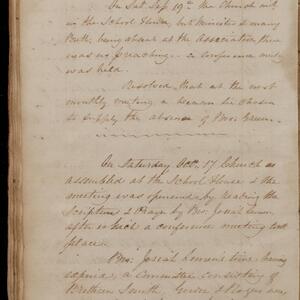 On Sat. Sep 19th the Church met
in the School House, but Minister & many
Breth. being absent at the Association there
was no preaching - a conference only
was held.
Resolved that at the next
monthly meeting a Deacon be chosen
to supply the absence of Bro.
On Saturday Octr. 17 Church as
assembled at the School House & the
meeting was opened by reading the
Scriptures & Prayer by Bro. Josiah
after which a conference meeting took
place.
Bro. Josiah time having
expired, a Committee consisting of
Brethren Smith, & Rogers